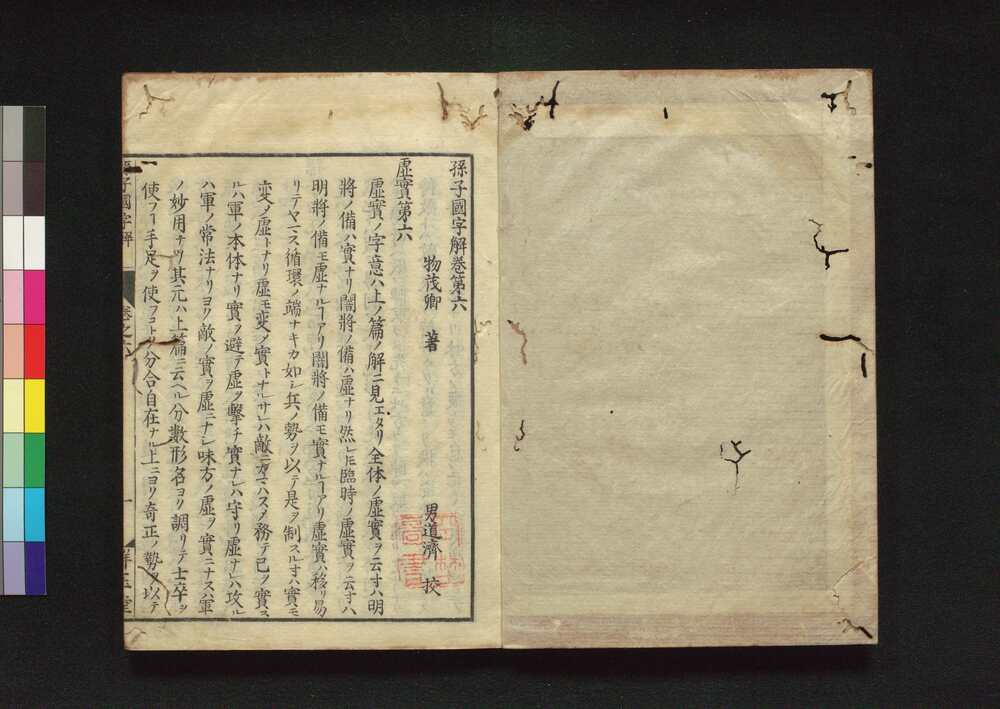 孫子國字解卷第六
物茂卿 著
男道濟 校
虛實第六
虛實ノ字意ハ上ノ篇ノ解ニ見エタリ全体ノ虛實ヲ云寸ハ明
將ノ備ハ實ナリ闇將ノ備ハ虛ナリ然𪜈臨時ノ虛實ヲ云寸ハ
明將ノ備モ虛ナルヿアリ闇將ノ備モ實ナルヿアリ虛實ハ移リ易
リテヤマス循環ノ端ナキカ如シ兵ノ勢ヲ以テ是ヲ制スル寸ハ實モ
変メ虛トナリ虛モ変メ實トナルサレハ敵ニカマハスメ務テ己ヲ實ス
ルハ軍ノ本体ナリ實ヲ避テ虛ヲ擊チ實ナレハ守リ虛ナレハ攻ル
ハ軍ノ常法ナリヨク敵ノ實ヲ虛ニナシ味方ノ虛ヲ實ニナスハ軍
ノ妙用ナリ其元ハ上篇ニ云ヘル分數形名ヨリ調リテ士卒ヲ
使フヿ手足ヲ使フコトク分合自在ナル上ニヨリ奇正ノ勢ヲ以テ
孫子國字解
卷之六
一